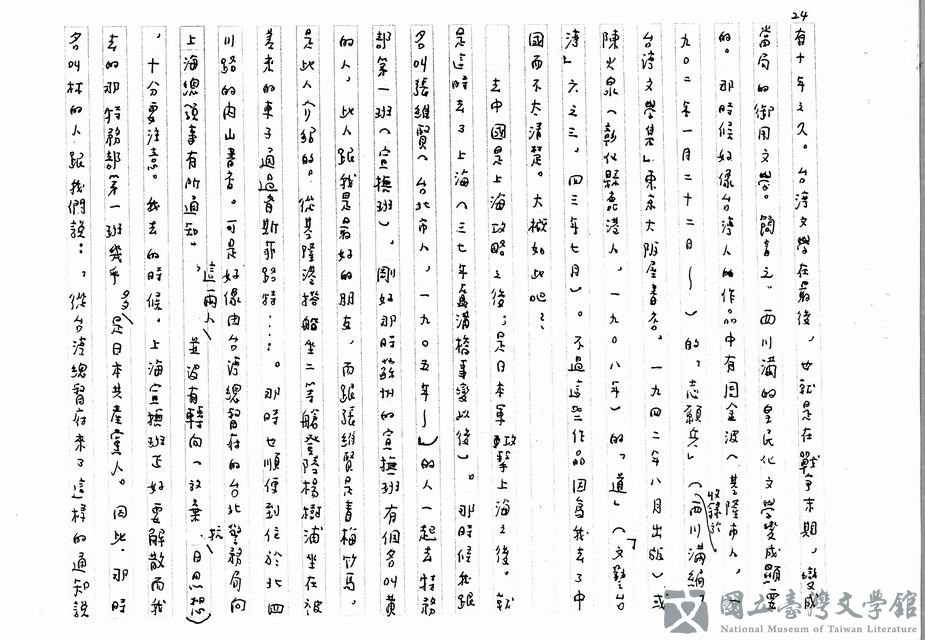 24
有十年之久。台湾文學在最後，也就是在戰爭末期，變成
當局的御用文學。簡言之，西川滿的皇民化文學變成顯要
的。那時候好像台湾人的作品中有周金波（基隆市人，一
九二〇年一月二十二日～）的「志願兵」（收錄於西川滿編「
台湾文學集」東京大阪屋書店。一九四二年八月出版）或
陳火泉（彰化縣鹿港人，一九〇八年）的「道」（「文藝台
湾」六之三，四三年七月）。不過這些作品因為我去了中
國而不太清楚。大概如此吧？
去中國是上海攻略之後；是日本軍攻擊上海之後。就
是這時去了上海（三七年蘆溝橋事變以後）。那時候我跟
名叫張維賢（台北市人，一九〇五年～）的人一起去特務
部第一班（宣撫班），剛好那時蘇州的宣撫班有個名叫黃
的人，此人跟我是最好的朋友，而跟張維賢是青梅竹馬，
是此人介紹的。從基隆港搭船坐二等艙登陸楊樹浦坐在被
差來的車子通過育斯菲路特⋯⋯。那時也順便到位於北四
川路的內山書店。可是好像由台湾總督府的台北警務局向
上海總領事有所通知，「這兩人並沒有轉向（放棄抗日思想）
，十分要注意。我去的時候。上海宣撫班正好要解散而我
去的那特務部第一班幾乎多是日本共產黨人。因此，那時
名叫林的人跟我們說：「從台湾總督府來了這樣的通知說
國立臺灣文學館
National Museum of Taiwan Literature